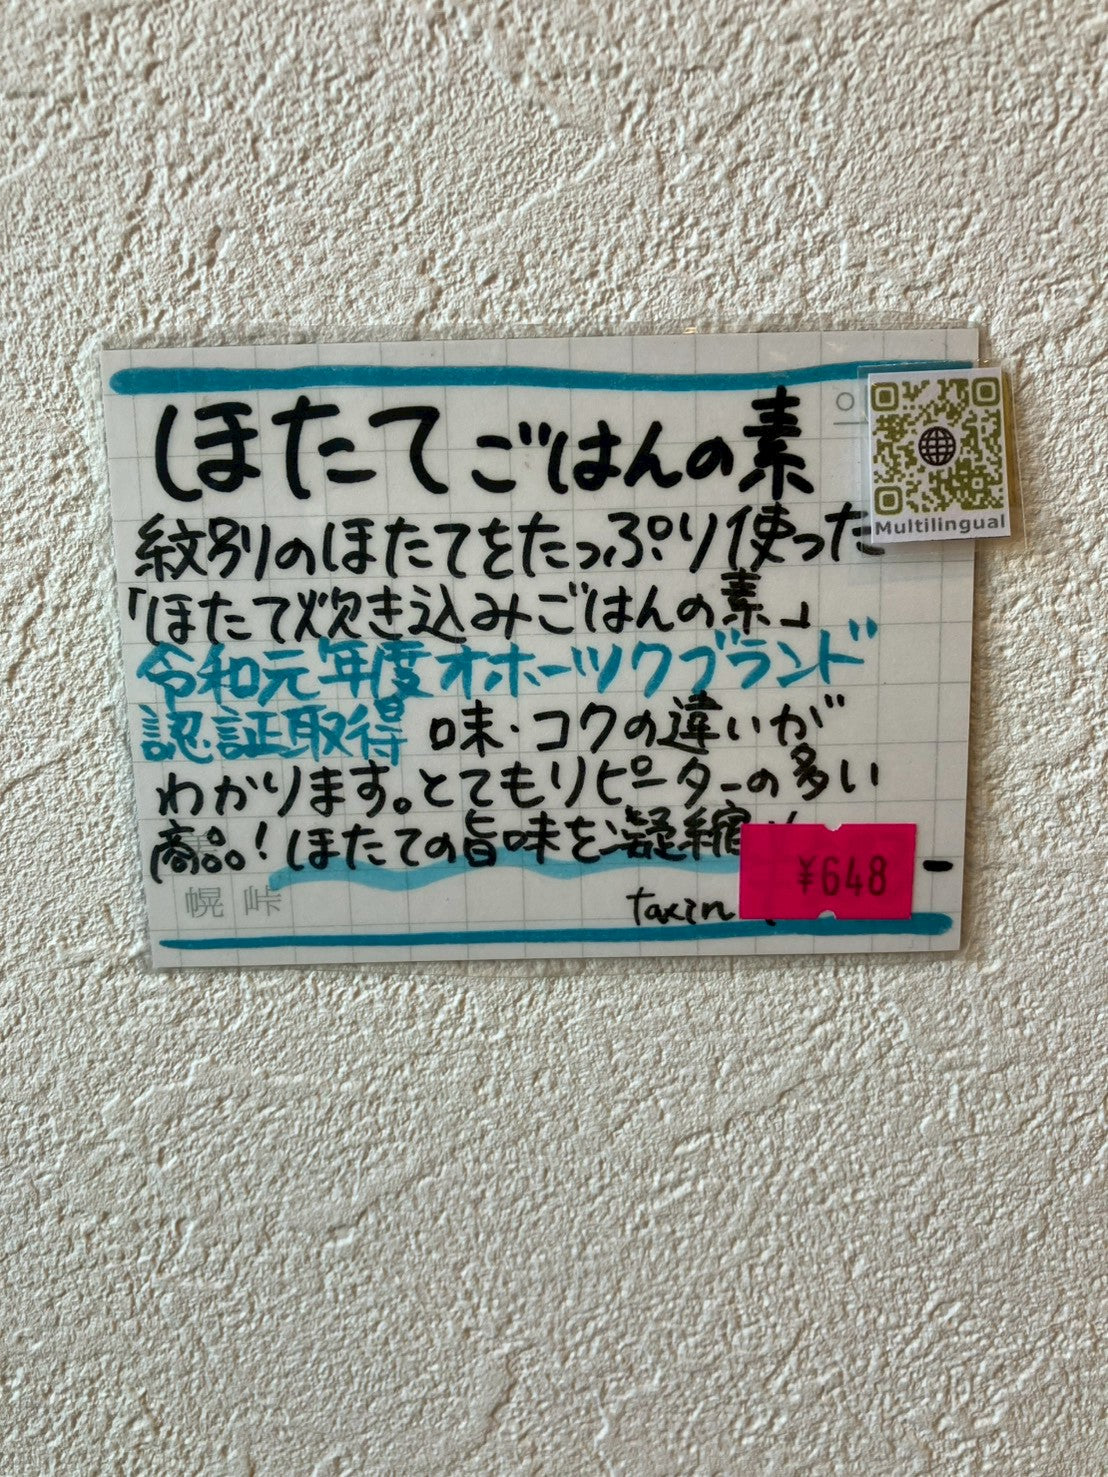 ほたてごはんの素
Multilingual
紋別のほたてをたっぷり使った
「ほたて炊き込みごはんの素」
令和元年度オホーツクブランド
認証取得 味・コクの違いが
わかります。とてもリピーターの多い
商品！ほたての旨味を凝縮
¥648
幌 峠
taxin